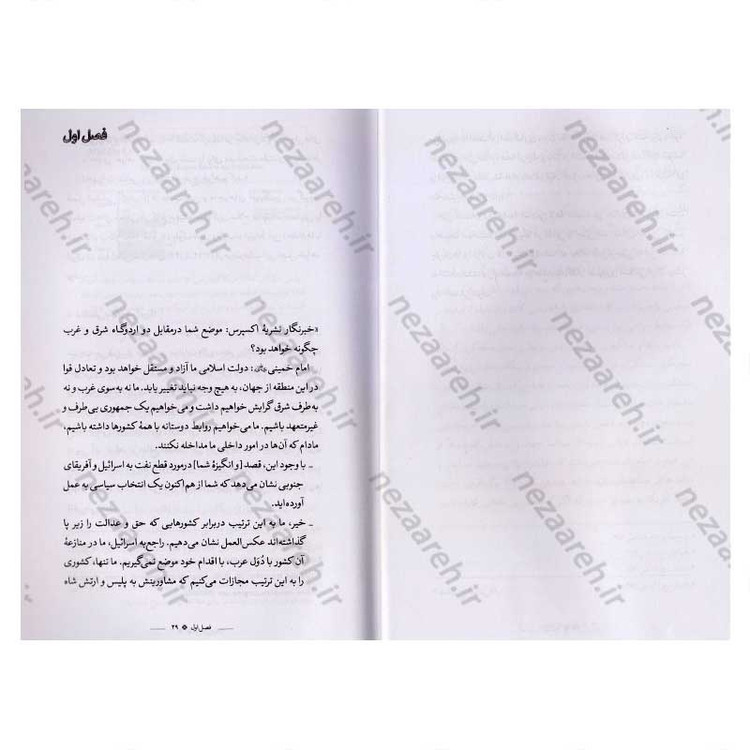 فصل اول
«خبرنگار نشریهٔ اکسپرس: موضع شما درمقابل دو اردوگاه شرق و غرب
چگونه خواهد بود؟
امام خمینی: دولت اسلامی ما آزاد و مستقل خواهد بود و تعادل قوا
در این منطقه از جهان، به هیچ وجه نباید تغییر یابد. ما نه به‌سوی غرب و نه
به‌طرف شرق گرایش خواهیم داشت و می‌خواهیم یک جمهوری بی‌طرف و
غیرمتعهد باشیم. ما می‌خواهیم روابط دوستانه با همهٔ کشورها داشته باشیم،
مادام که آن‌ها در امور داخلی ما مداخله نکنند.
ـ با وجود این، قصد [و انگیزهٔ شما] درمورد قطع نفت به اسرائیل و آفریقای
جنوبی نشان می‌دهد که شما از هم‌اکنون یک انتخاب سیاسی به عمل
آورده‌اید.
ـ خیر، ما به این ترتیب دربرابر کشورهایی که حق و عدالت را زیر پا
گذاشته‌اند عکس‌العمل نشان می‌دهیم. راجع‌به اسرائیل، ما در منازعهٔ
آن کشور با دُوَل عرب، با اقدام خود موضع نمی‌گیریم. ما تنها، کشوری
را به این ترتیب مجازات می‌کنیم که مشاورینش به پلیس و ارتش شاه
فصل اول ۲۹
nezaareh.ir
nezaareh.ir
nezaareh.ir
nezaareh.ir
nezaareh.ir
nezaareh.ir
nezaareh.ir
nezaareh.ir